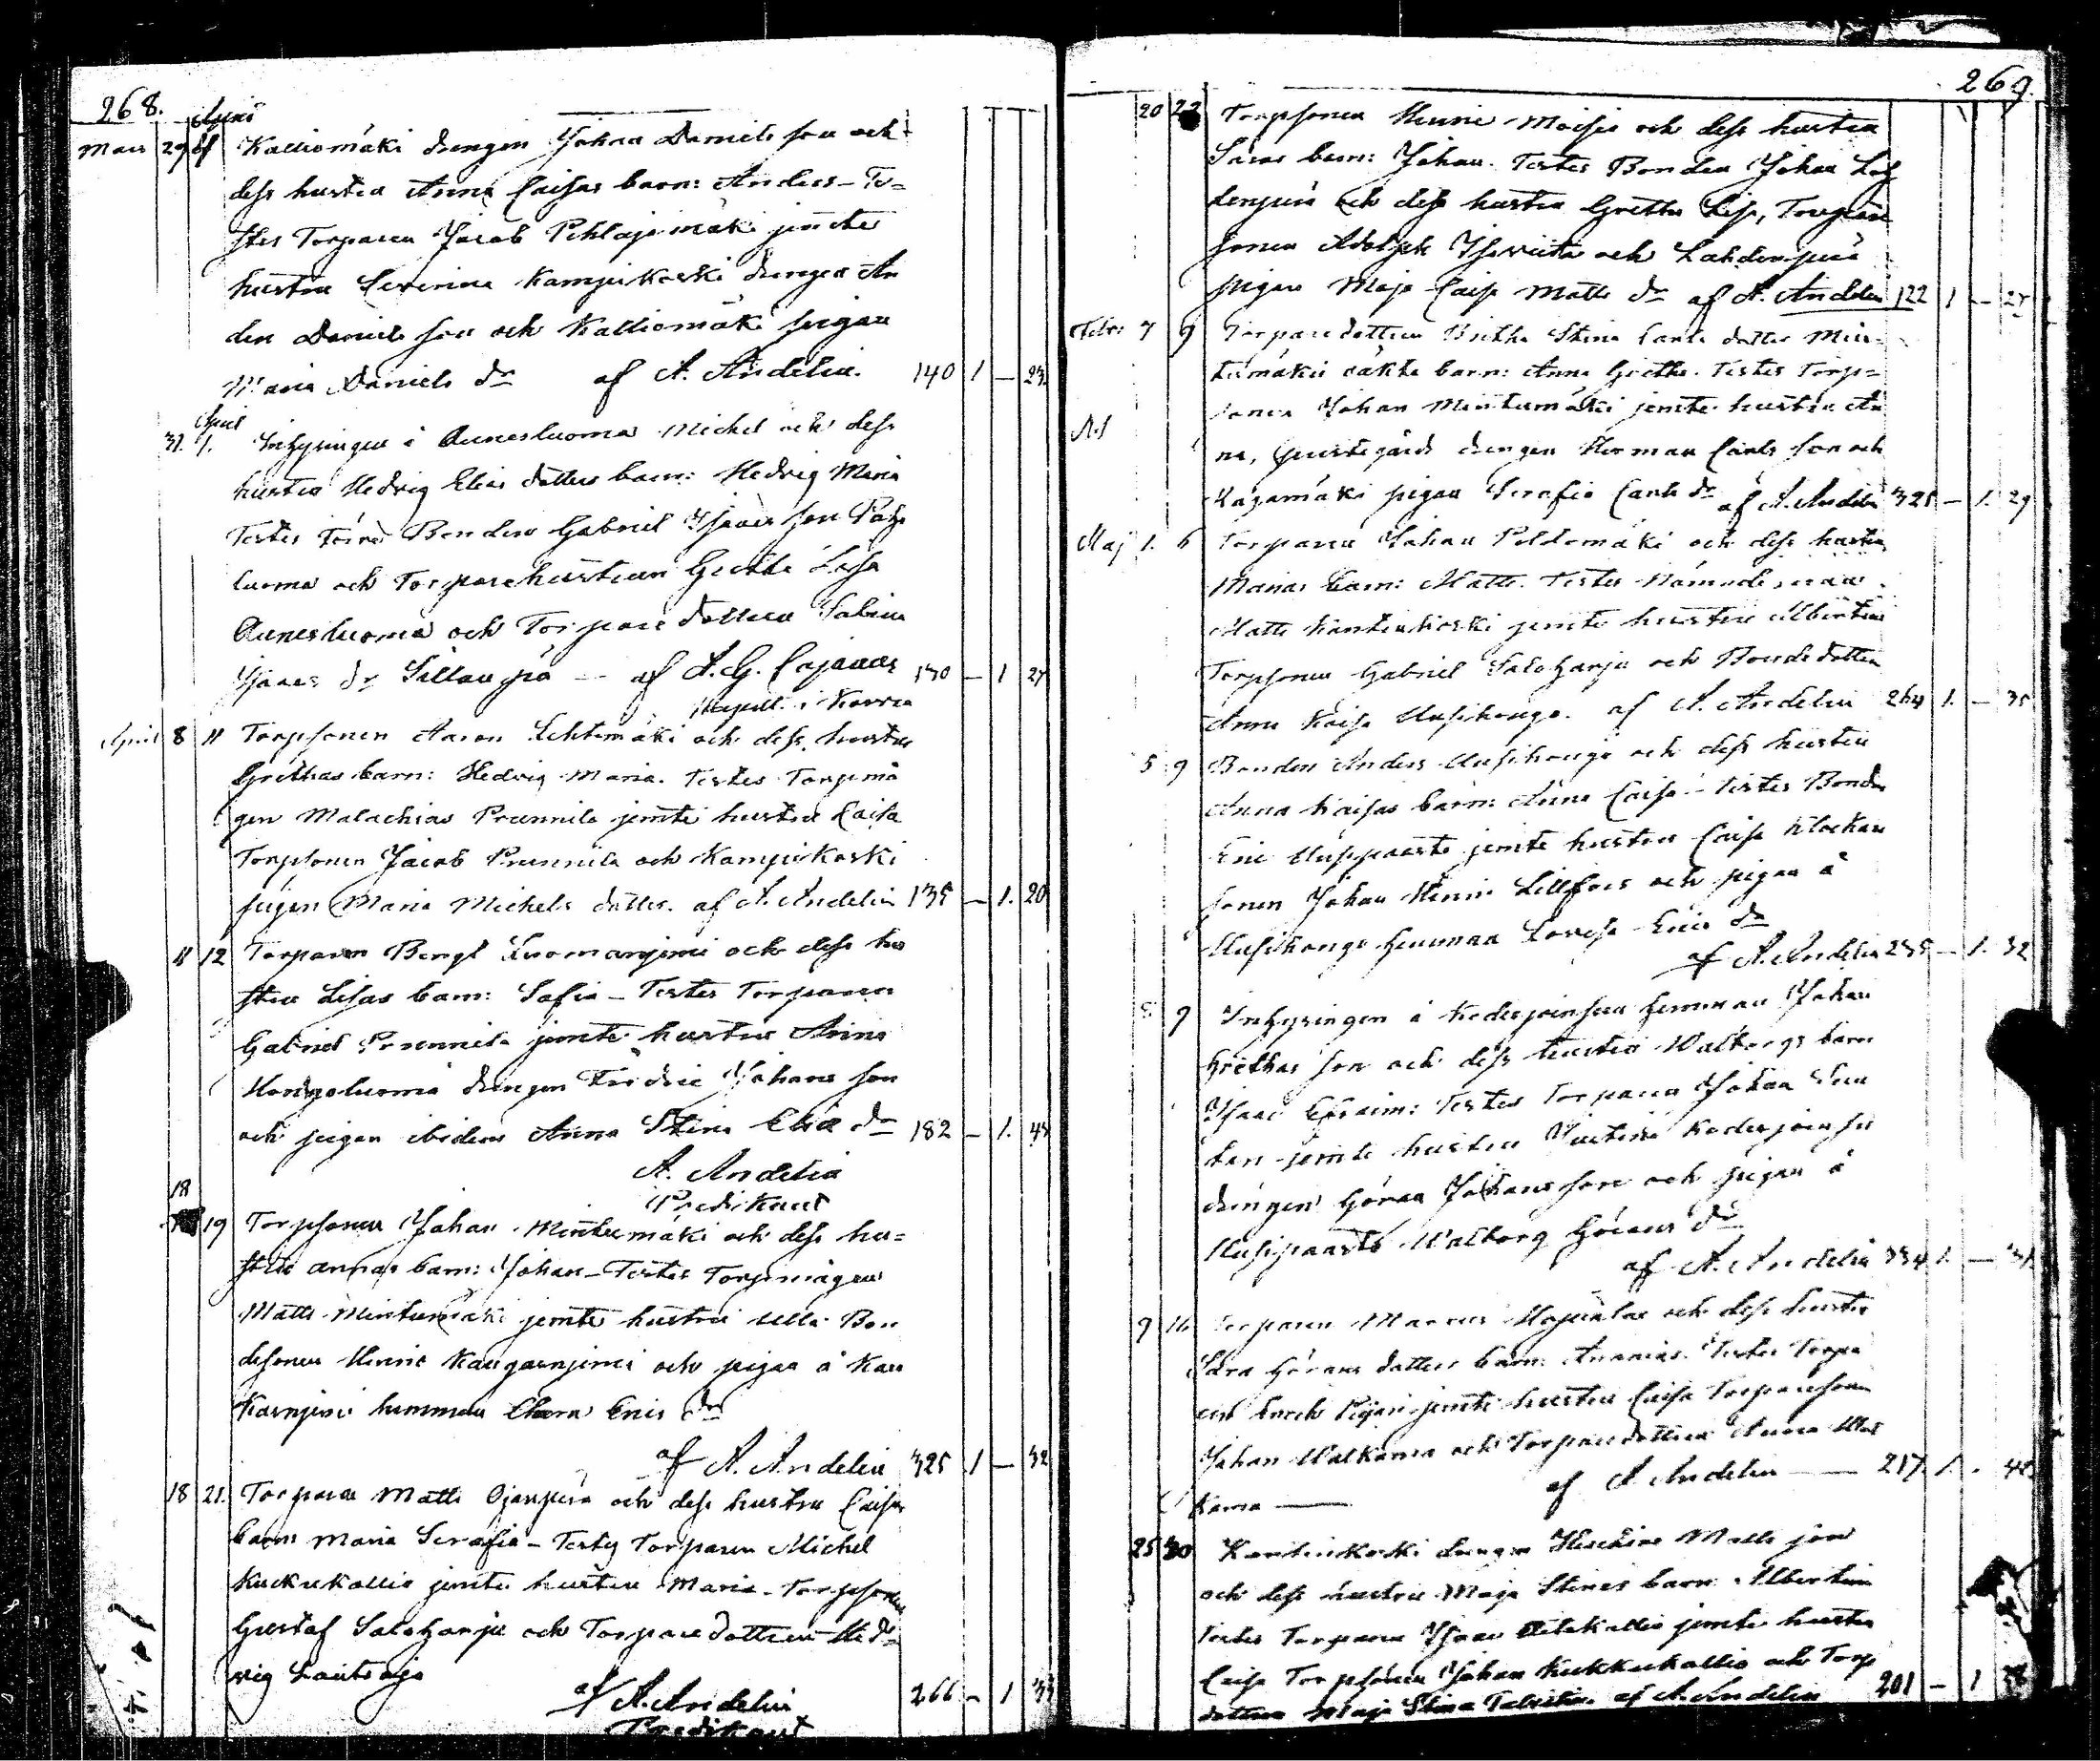 268.
April
Mars 29 Kalliomäki drengen Johan Daniels son och
dess hustru Anna Caisas barn: Anders - Te=
stes Torparen Jacob Pihlajamäki jemte
hustru Severina Kampikoski drengen An
ders Daniels son och Kalliomäki pigan
Maria Daniels dr af A. Andelin. 140 1 — 23.
April
31. 1. Inhysingen i Aunesluoma Michel och dess
hustru Hedvig Elias dotters barn: Hedvig Maria
Testes Bonden Gabriel Isaacs son
luoma och Torparehustrun Gretha Lisa
Aunesluoma och Torpare dottren Sabina
Isaacs dr Sillanpä — af A. G. Cajanus 130 — 1 27
i Kavra
April 8 11 Torpsonen Aaron Lehtimäki och dess hustru
Grethas barn: Hedvig Maria. Testes Torpmå
gen Malachias Prunnila jemte hustru Caisa
Torpsonen Jacob Prunnila och Kampikoski
pigan Maria Michels dotter. af A. Andelin 135 — 1. 20
11 12 Torparen Bengt Luomanjemi och dess hu
stru Lisas barn: Safia - Testes Torparen
Gabriel Prunnila jemte hustru Anna
Hongoluoma drengen Fredric Johans son
och pigan ibidem Anna Stina Elia dr 182 — 1. 45
A. Andelin
Predikant
18
19 Torpsonen Johan Mintumäki och dess hu=
stru annas barn: Johan - Testes Torpmågen
Matts Mintumäki jemte hustru Ulla Bon
desonen Henric Kangasnjemi och pigan å Kan
kasnjemi hemman Clara Erics dr
af A. Andelin 325 1 — 32
18 21. Torparen Matts Ojanperä och dess hustru Caisas
barn Maria Serafia - Testes Torparen Michel
Kuckukallio jemte hustru Maria - Torpsonen
Gustaf Saloharju och Torpare dottren Hed=
vig Lautaoja
af A. Andelin 266 — 1 33
Predikant
269.
20 22 Torpsonen Henric Moisio och dess hustru
Saras barn: Johan. Testes Bonden Johan Lah
denperä och dess hustru Gretha Lisa, Torpare
sonen Adolph Ishoviita och Lahdenperä
pigan Maja Caisa Matts dr af A. Andelin 122 1 — 27
Febr: 7 9 Torparedottren Britha Stina Carls dotter Min=
tumäkis oäkta barn: Anna Gretha. Testes Torp=
sonen Johan Mintumäki jemte hustru An
na, prestegårds drengen Herman Carls son och
pigan Serafia Carls dr af A. Andelin 325 — 1. 29
Maj 1. 6 Torparen Johan Peldomäki och dess hustru
Marias barn: Matts. Testes Nämndeman
Matts Kantinkoski jemte hustru Albertina
Torpsonen Gabriel Saloharju och Bondedottren
Anna Kaisa Uusihonga. af A. Andelin 264 1. — 35
5 9 Bonden Anders Uusihonga och dess hustru
Anna Kaisas barn: Anna Caisa - Testes Bonden
Eric Uusipaasto jemte hustru Caisa Klockare
sonen Johan Henric Lillfors och pigan å
Uusihonga hemman Lovisa Erics dr
af A. Andelin 235 — 1. 32
9 Inhysingen å Kodesjoensuu hemman Johan
Grethas son och dess hustru Walborgs barn
Isaac Efraim: Testes Torparen Johan
jemte hustru Justina Kodesjoensu
drengen Göran Johans son och pigan å
Uusipaasto Walborg Görans dr
af A. Andelin 334 1. — 31.
9 16 Torparen Marcus och dess hustru
Sara Görans dotters barn: Ananias. Testes Torpa
ren Enoch jemte hustru Caisa Torparesonen
Johan Walkama och Torparedottren Anna Wal
kama —— af A. Andelin —— 217. 1. - 42
25 30 Kantinkoski drengen Matts son
och dess hustru Maja Stinas barn Albertina
Testes Torparen Isaac jemte hustru
Caisa Torpsonen Johan Kukkukallio och Torp
dottren Maja Stina af A. Andelin 201 — 1